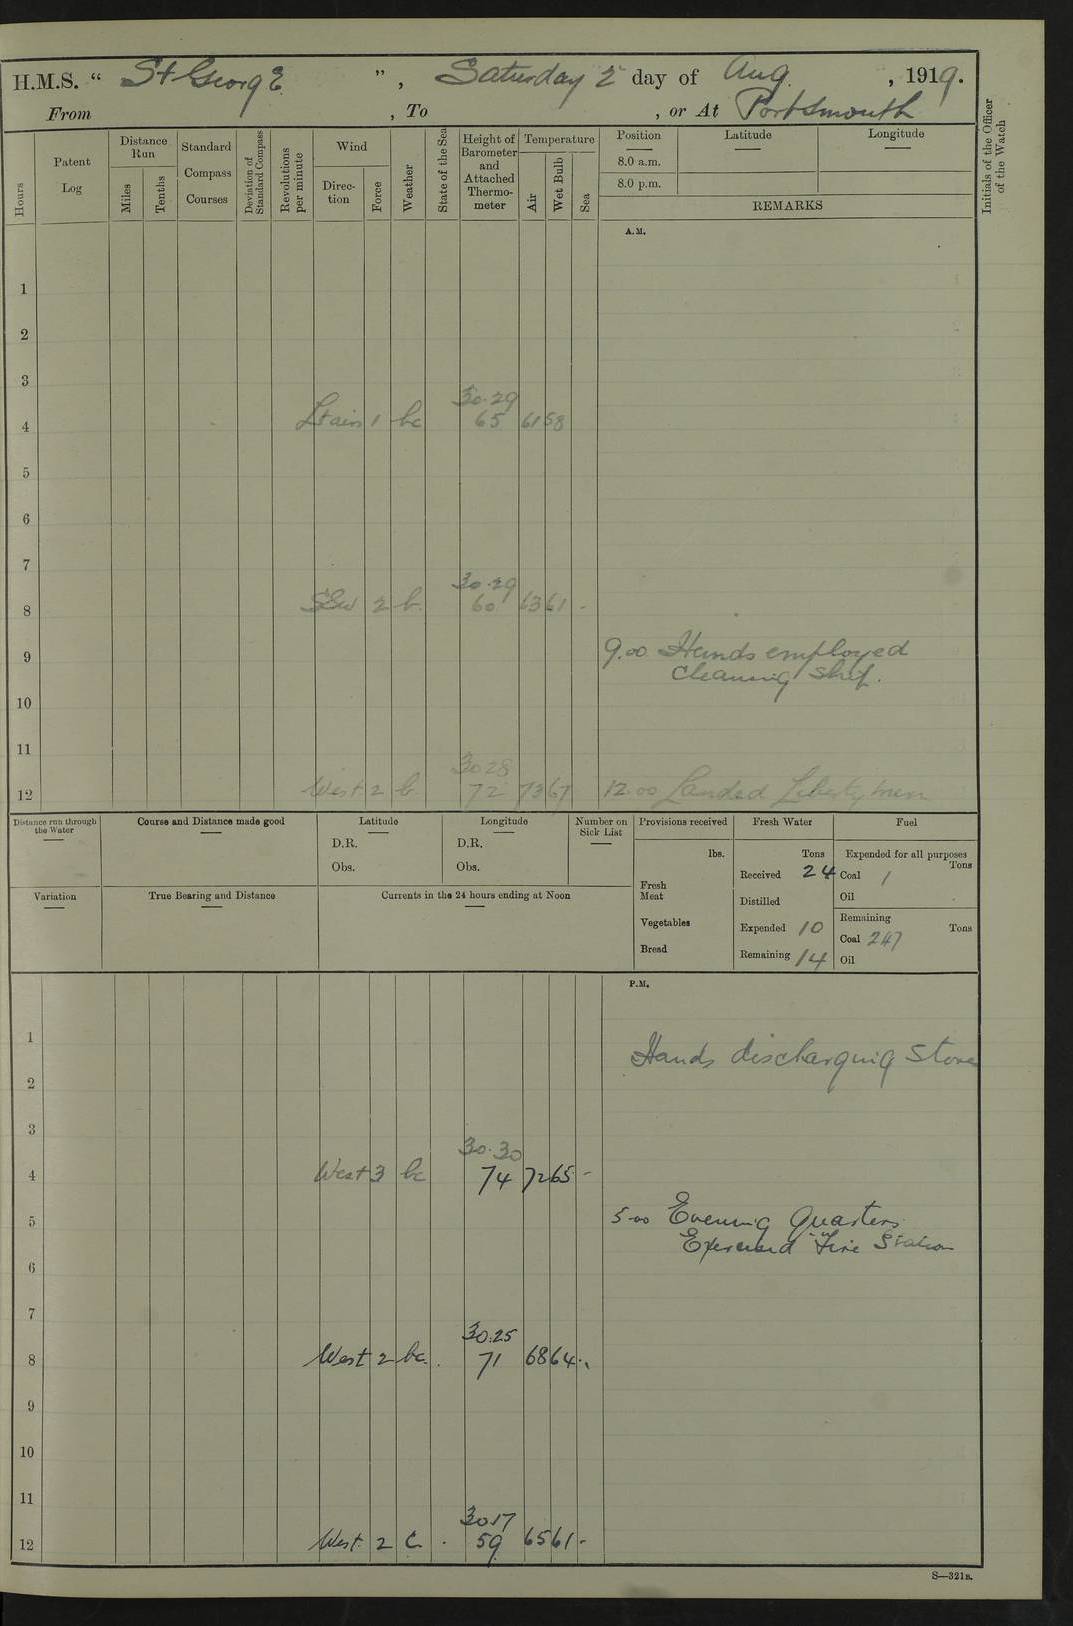 H.M.S. “ St George ”, Saturday 2 day of Aug. , 1919.
From , To , or At Portsmouth
Hours
Patent Log
Distance Run
Miles
Tenths
Standard Compass Courses
Deviation of Standard Compass
Revolutions per minute
Wind
Direc-tion
Force
Weather
State of the Sea
Height of Barometer and Attached Thermo-meter
Temperature
Air
Wet Bulb
Sea
Position
8.0 a.m.
8.0 p.m.
Latitude
Longitude
REMARKS
Initials of the Officer of the Watch
A.M.
1
2
3
30.29
4 1 bc 65 61 58
5
6
7
30.29
8 2 b. 60 63 61 -
9 9.00 Hands employed
cleaning ship.
10
11
30 28
12 West 2 b 72 73 67 12.00 Landed Liberty men
Distance run through the Water
Course and Distance made good
Latitude
D.R.
Obs.
Longitude
D.R.
Obs.
Number on Sick List
Provisions received
lbs.
Fresh Meat
Vegetables
Bread
Fresh Water
Tons
Received 24
Distilled
Expended 10
Remaining 14
Fuel
Expended for all purposes
Tons
Coal 1
Oil
Remaining
Tons
Coal 247
Oil
Variation
True Bearing and Distance
Currents in the 24 hours ending at Noon
P.M.
1 Hands discharging Stores
2
3
30.30
4 West 3 bc 74 72 65 -
5 5.00 Evening Quarters
Exercised Fire Station
6
7
30.25
8 West 2 bc. . 71 68 64 -
9
10
11
30.17
12 West. 2 C. . 59 65 61 -
S—321B.